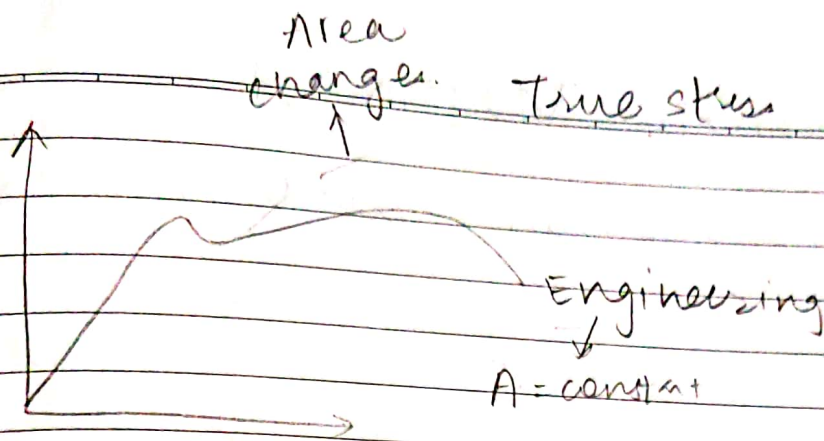 Area
changes.
True stress
Engineering
A = constant